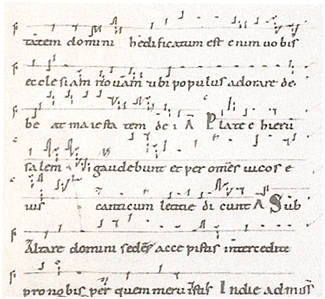 tatem domini hedificatum est enim uobis
ecclesiam nouam ubi populus adorare de
be at maiesta tem de i A Plate e hieru
salem gaudebunt et per omēs uicos e
ius canticum letitie di cunt A Sub
Altare domini sedes acce pistis intercedite
pro nobis per quem meru istis In die ad miss